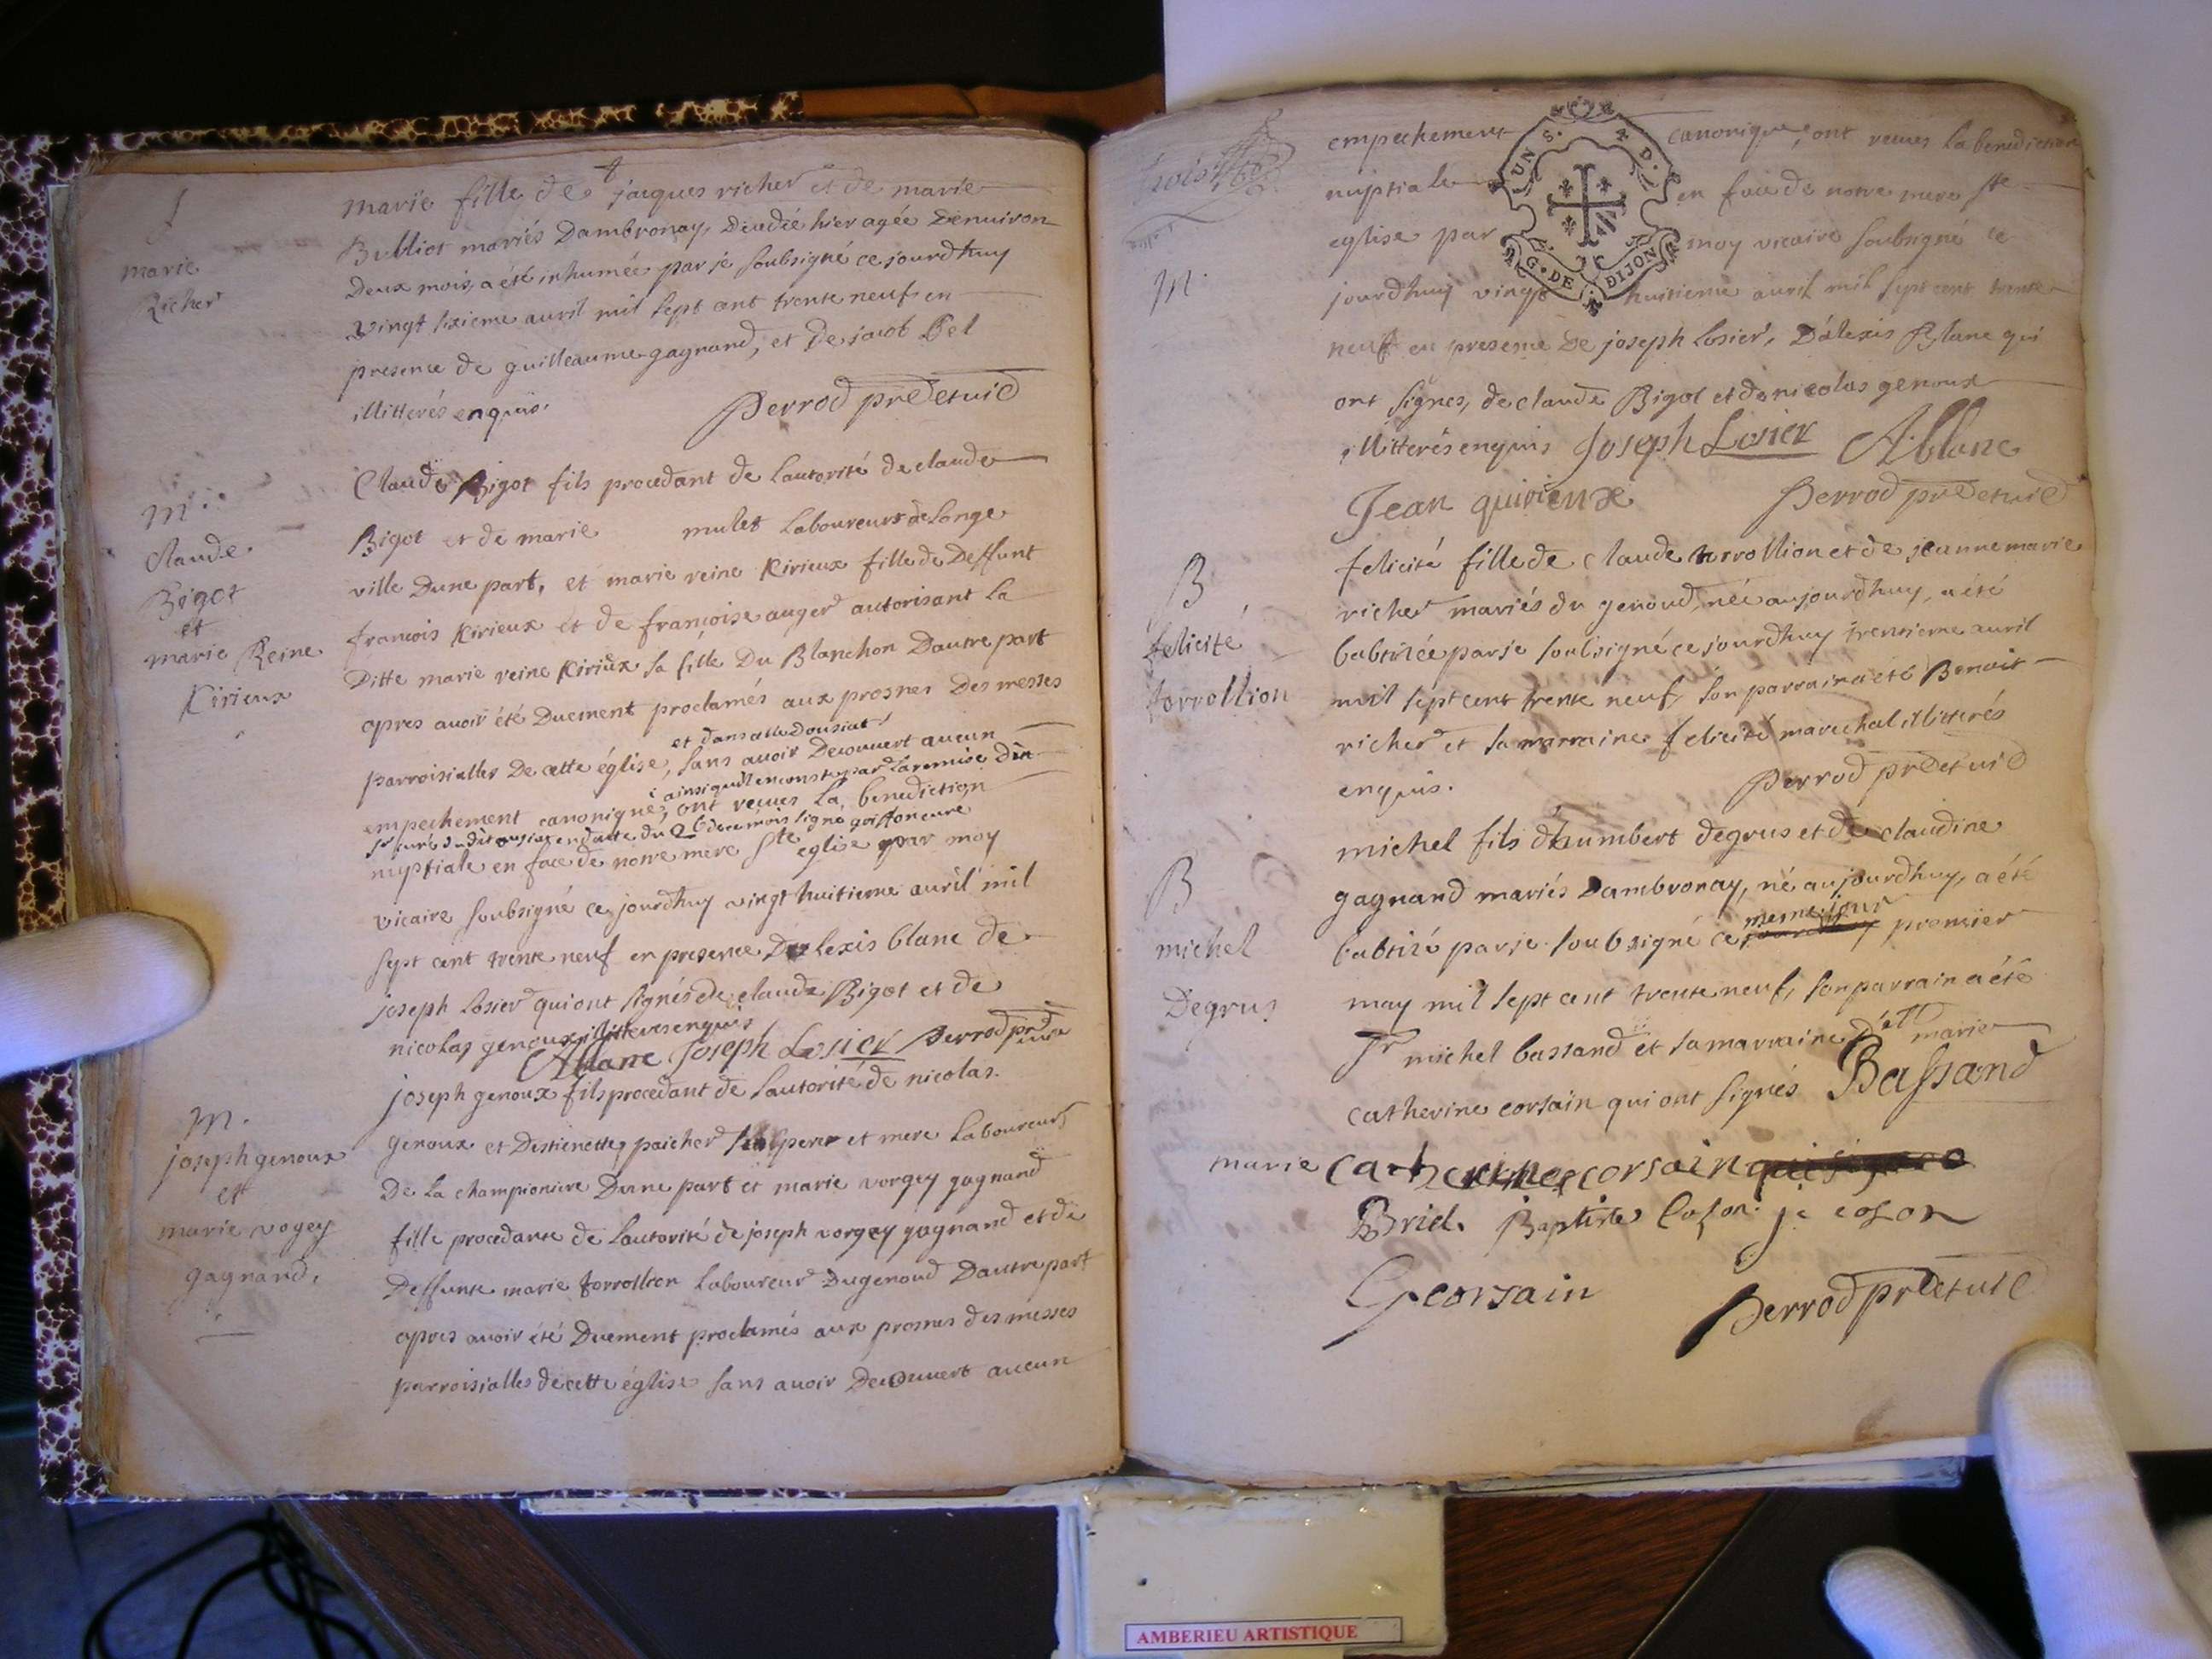 marie
Richer
marie fille de jacques richer et de marie
Bulliot mariés Dambronay, Decedée hier agée Denuiron
Deux mois, a été inhumée par je soubsigné ce jourdhuy
vingt sixieme auril mil sept cent trente neuf en
presence de guilleaume gagnand, et de jacob Bel
illitterés enquis.
Perrod pre et vic
m.
claude
Bigot
et
marie Reine
Kirieux
Claude Bigot fils procedant de lautorité de claude
Bigot et de marie mulet Laboureurs de Longe
ville Dune part, et marie reine Kirieux fille de Deffunt
francois Kirieux et de françoise auger autorisant la
Ditte marie reine Kirieux sa fille Du Blanchon Dautre part
apres auoir été Duement proclamés aux prosnes Des messes
et dans celle Dousiat
parroisialles De cette église, sans auoir Decouuert aucun
ainsi quil en conste par la remise du
empechement canonique, ont receus la benediction
sr curé dudit ousiat en datte du 26 de ce mois signé goiffon curé
nuptiale en face de notre mere Ste eglise par moy
vicaire soubsigné ce jourdhuy vingt huitieme auril mil
sept cent trente neuf en presence Dalexis blanc de
joseph Losier qui ont signés de claude Bigot et de
nicolas genoux illitteres enquis
A blanc Joseph Losier Perrod pre et vic
m.
joseph genoux
et
marie vogey
gagnand.
joseph genoux fils procedant de lautorité de nicolas
genoux et Destienette paicher ses pere et mere Laboureurs
De la championiere Dune part et marie vorgey gagnand
fille procedante de Lautorité de joseph vorgey gagnand et de
Deffunte marie torrollion Laboureur Dugenoud Dautre part
apres auoir été Duement proclamés aux prosnes des messes
parroisialles de cette église sans auoir Decouuert aucun
trois
m.
UN S. 4 D.
G. DE DIJON
empechement canonique, ont receus la benediction
nuptiale en face de notre mere Ste
eglise par moy vicaire soubsigné ce
jourdhuy vingt huitieme auril mil sept cent trente
neuf en presence De joseph Losier, Dalexis Blanc qui
ont signes, de claude Bigot et de nicolas genoux
illitterés enquis Joseph Losier A. blanc
Jean quirieux Perrod pre et vic
B
felicité
torrollion
felicité fille de claude torrollion et de jeanne marie
richer mariés du genoud, née aujourdhuy, a été
babtisée par je soubsigné ce jourdhuy trentieme auril
mil sept cent trente neuf, son parrain a été Benoit
richer et sa marraine felicité marechal illitterés
enquis.
Perrod pre et vic
B
michel
Degrus
michel fils dhumbert degrus et de claudine
gagnand mariés Dambronay, né aujourdhuy, a été
meme jour
babtisé par je soubsigné ce jourdhuy premier
may mil sept cent trente neuf, son parrain a été
Sr michel bassand et sa marraine marie
catherine corsain qui ont signés Bassand
marie catherine corsain
Briel. Baptiste Coson. j c coson
G corsain
Perrod pre et vic
AMBERIEU ARTISTIQUE